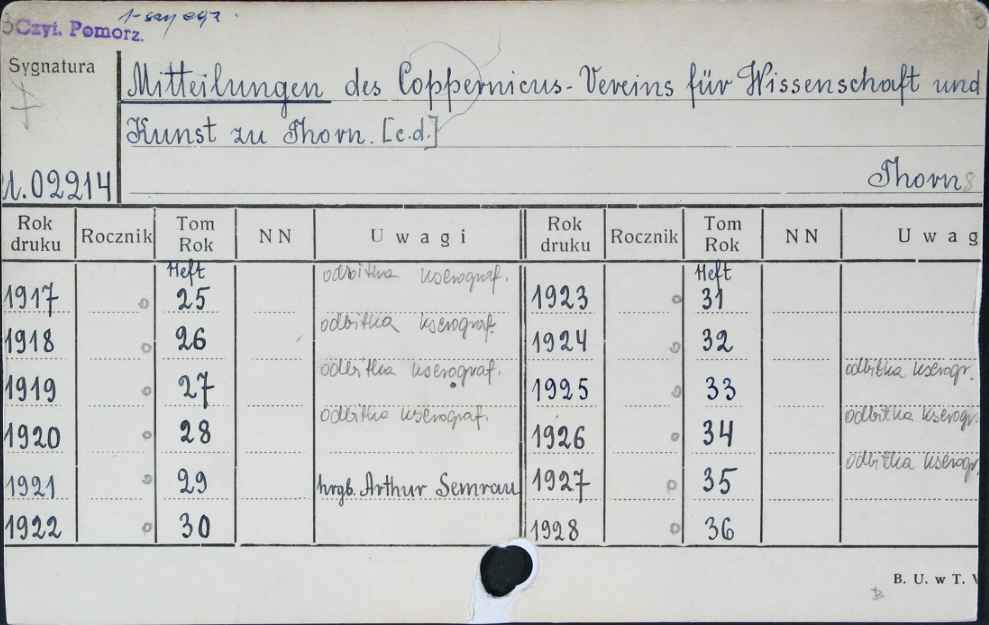 1-szy egz.
Czyt. Pomorz.
Sygnatura
Mitteilungen des Coppernicus-Vereins für Wissenschaft und
Kunst zu Thorn. [c.d.]
02214
Thorn
Rok druku Rocznik Tom Rok NN Uwagi Rok druku Rocznik Tom Rok NN Uwag
Heft odbitka kserograf. Heft
1917 25 1923 31
odbitka kserograf.
1918 26 1924 32
odbitka kserograf. odbitka kserogr.
1919 27 1925 33
odbitka kserograf. odbitka kserogr.
1920 28 1926 34
odbitka kserogr.
1921 29 hrgb. Arthur Semrau 1927 35
1922 30 1928 36
B. U. w T.